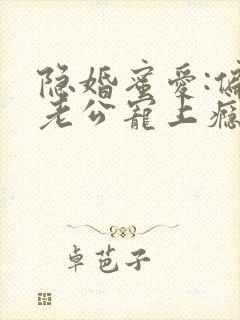 隐婚蜜爱:偏
老公宠上瘾
卓芭子